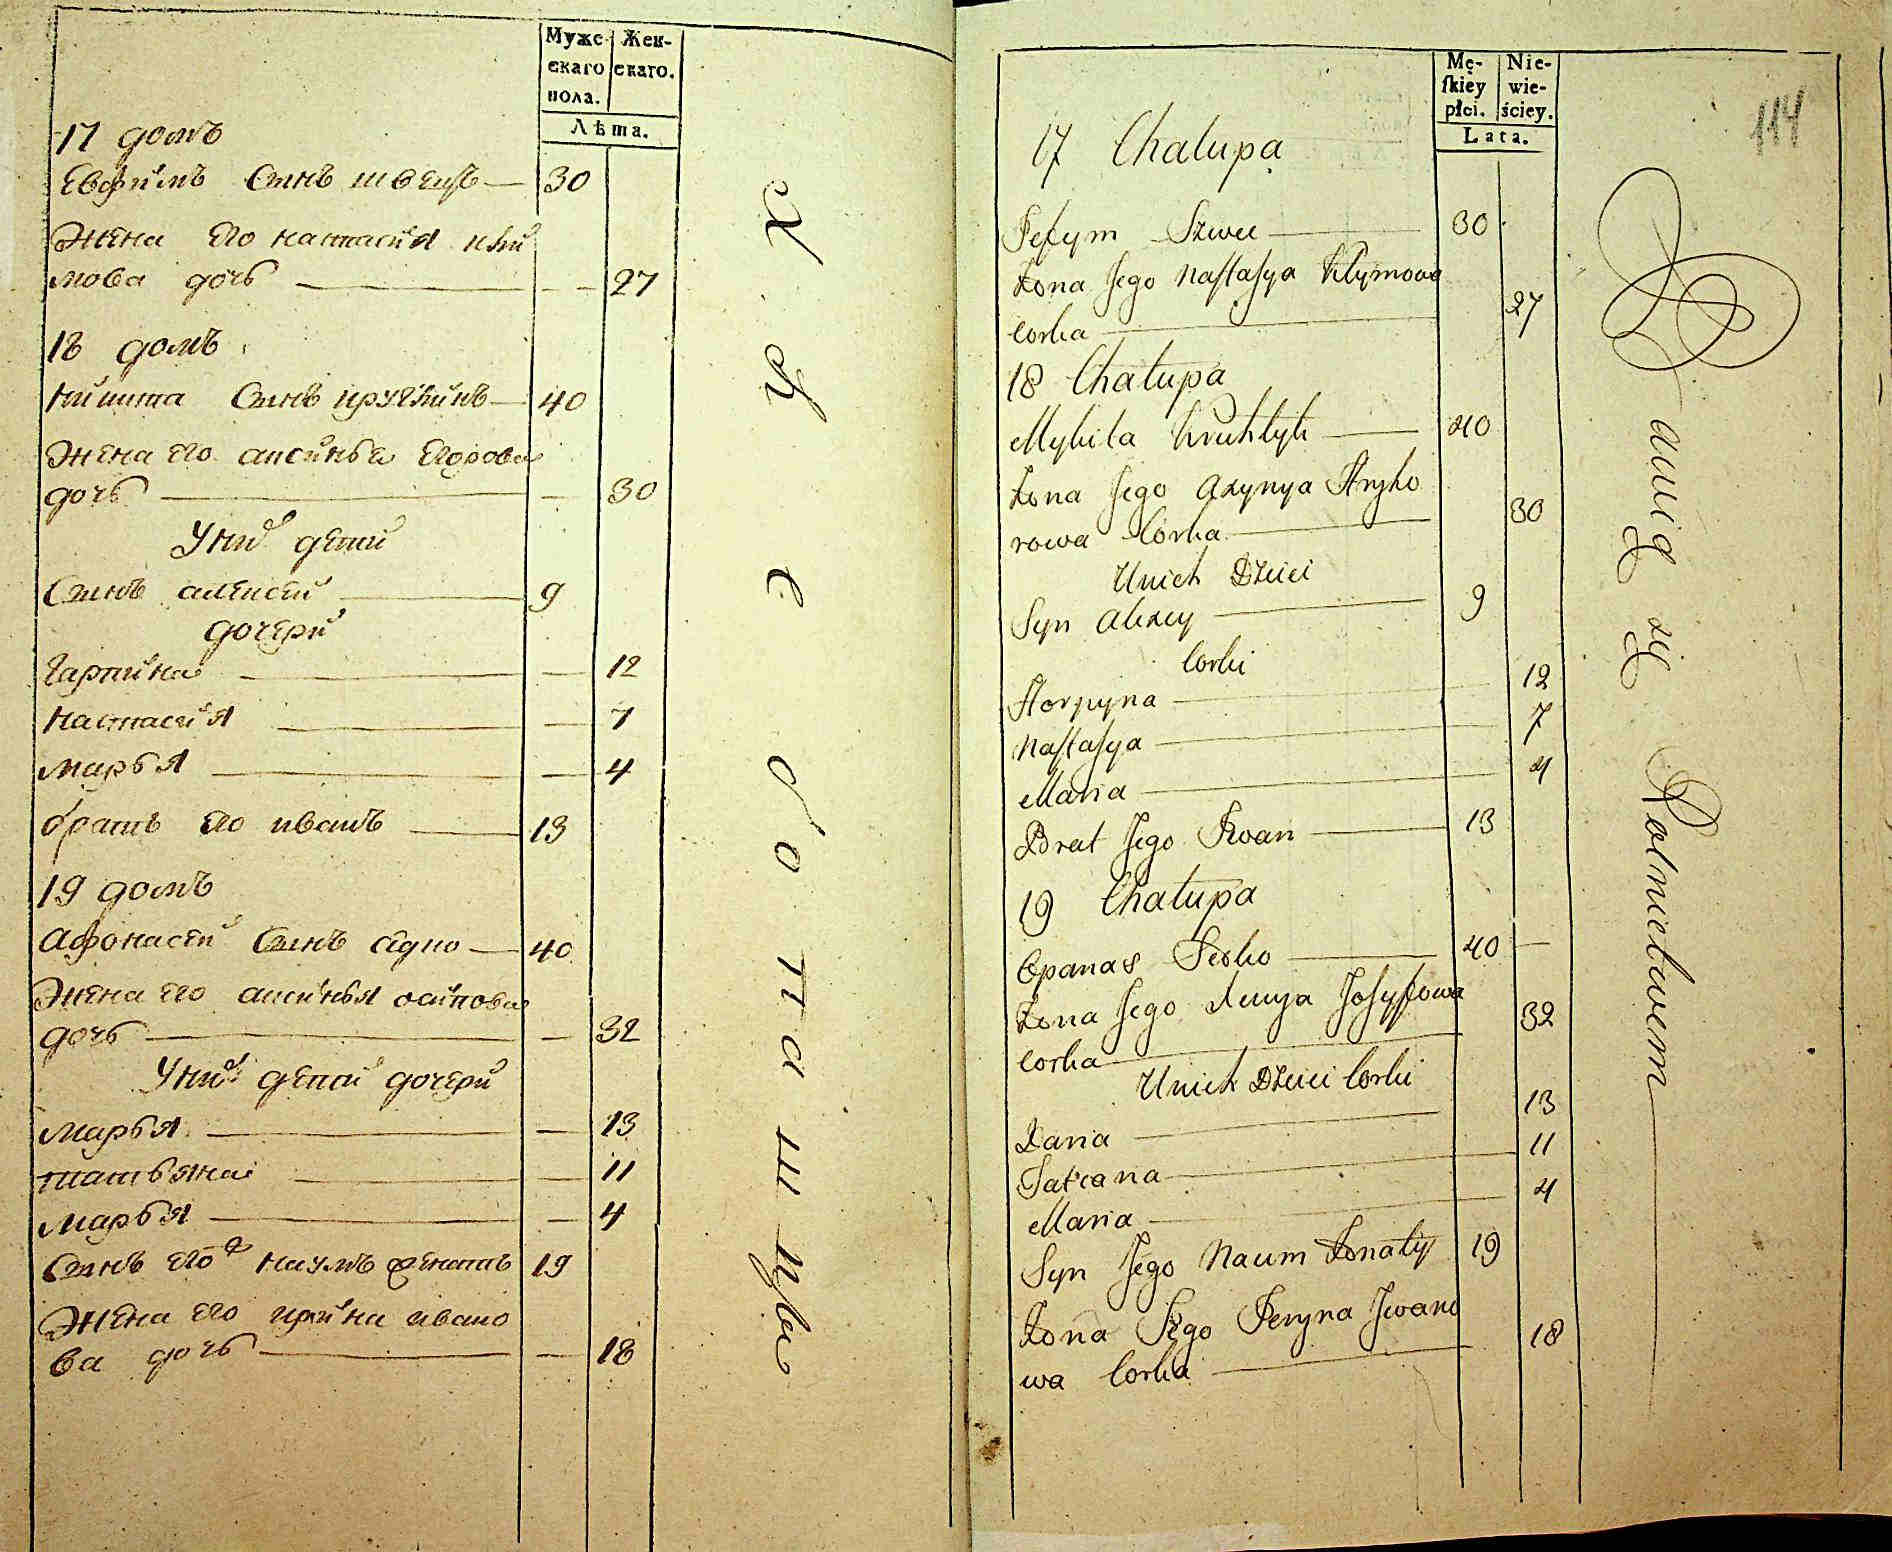 Муже-
скаго
пола.
Жен-
скаго.
Лѣта.
17 домъ
Евфимъ Сынъ швецъ 30
Жена его настасия клй
мова дочь 27
18 домъ
никита Сынъ
40
Жена его аксинья
дочь 30
У них дети
Сынъ алексей 9
дочери
гарпина 12
настасия 7
марья 4
братъ его иванъ 13
19 домъ
Афонасей Сынъ 40
Жена его аксинья осипова
дочь 32
У них дети дочери
марья 13
татьяна 11
марья 4
Сынъ его наумъ женатъ 19
Жена его ирина ивано
ва дочь 18
Хлебопашцы
Mę-
ſkiey
płci.
Nie-
wie-
ściey.
Lata.
114
17 Chałupa
Jefym Szwec 30
Żona Jego Naſtaſya Klymowa
Corka 27
18 Chałupa
Mykita Kruhłyk 40
Żona Jego Axynya Hryho
rowa Corka 30
Unich Dzieci
Syn Alexey 9
Corki
Horpyna 12
Naſtaſya 7
Maria 4
Brat Jego Iwan 13
19 Chałupa
Opanas 40
Żona Jego Josyfowa
Corka 32
Unich Dzieci Corki
13
Tatiana 11
Maria 4
Syn Jego Naum Żonaty 19
Żona Jego Jwano
wa Corka 18
Bawią się Rolnictwem